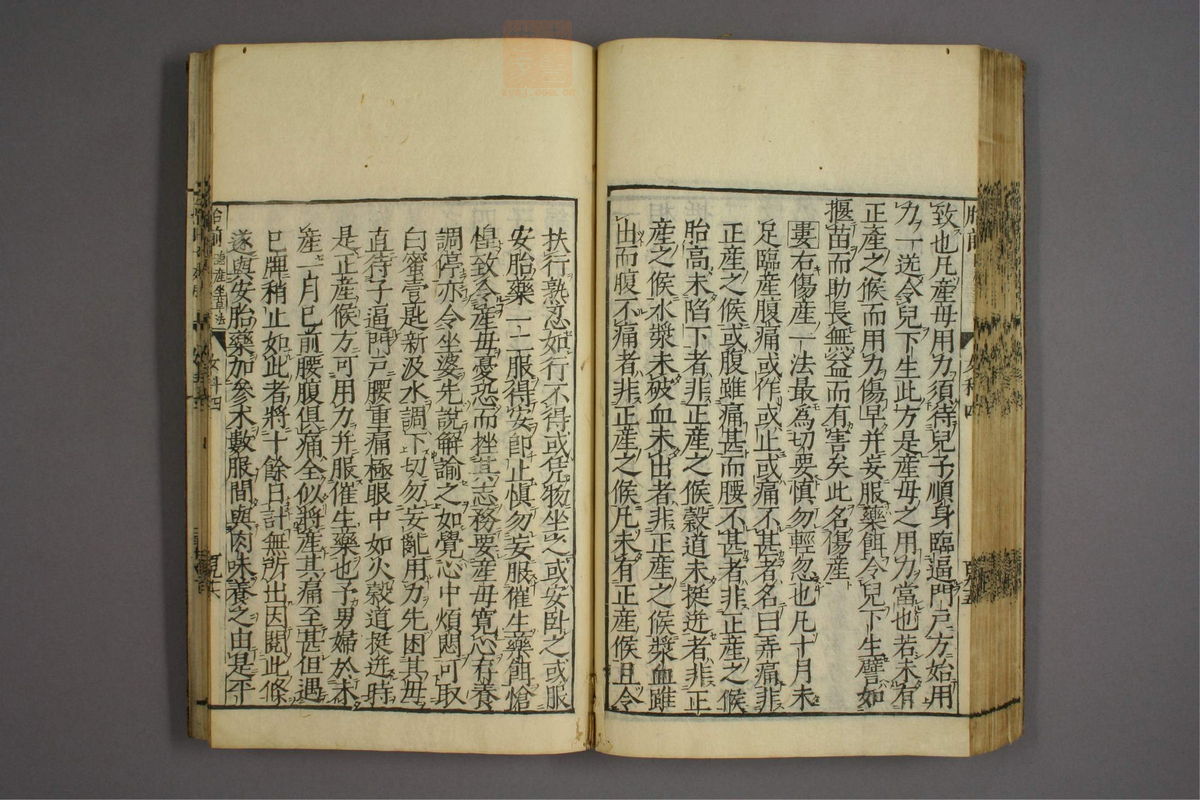 致也凡産母用力須待兒子順身臨逼門戸方始用
力一送令兒下生此方是産母之用力當也若未有
正産之候而用力傷早并妄服藥餌令兒下生譬如
揠苗而助長無益而有害矣此名傷産
婁右傷産一法最為切要慎勿輕忽也凡十月未
足臨産腹痛或作或止或痛不甚者名曰弄痛非
正産之候或腹雖痛甚而腰不甚者非正産之候
胎高未陷下者非正産之候穀道未挺迸者非正
産之候水漿未破血未出者非正産之候漿血雖
出而腹不痛者非正産之候凡未有正産候且令
扶行熟忍如行不得或凭物坐之或安臥之或服
安胎藥一二服得安即止慎勿妄服催生藥餌愴
惶致令産母憂恐而挫其志務要産母寛心存養
調停亦令坐婆先說解諭之如覺心中煩悶可取
白蜜壹匙新汲水調下切勿妄亂用力先困其母
直待子逼門戸腰重痛極眼中如火穀道挺迸時
是正産候方可用力并服催生藥也予男婦於未
産一月已前腰腹俱痛全似將産其痛至甚但遇
巳牌稍止如此者將十餘日計無所出因閱此條
遂與安胎藥加參术數服間與肉味養之由是平
胎前
女科四